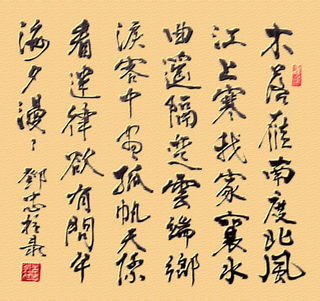 木落雁南度北風
江上寒我家襄水
曲遙隔楚雲端鄉
淚客中盡孤帆天際
看迷津欲有問平
海夕漫々 鄧志